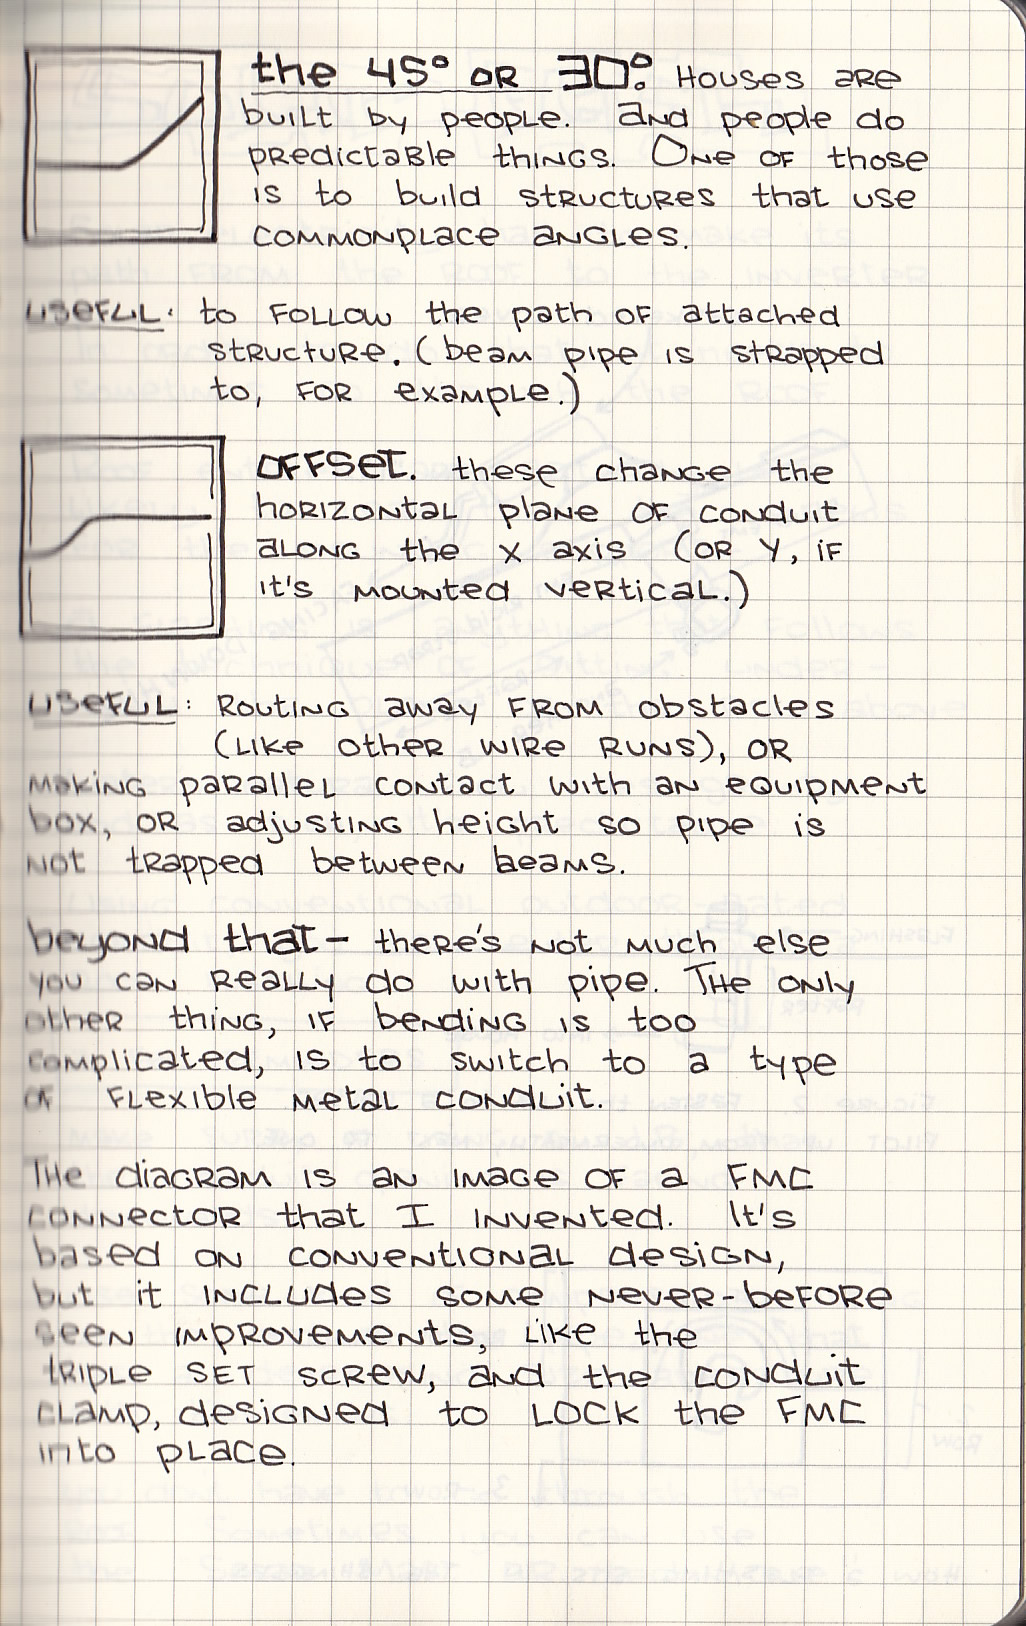 the 45° OR 30°. HOUSES ARE
built by people. and people do
PREdictABLE thINGS. ONE OF those
is to build structures that use
COMMONPLACE ANGLES.
USEFUL: to FOLLOW the path OF attached
structure. (beam pipe is strapped
to, FOR example.)
OFFSET. these change the
HORIZONTAL plane OF CONDUIT
ALONG the X axis (OR Y, iF
it's mounted vertical.)
USEFUL: ROUTING away FROM obstacles
(LIKE other WIRE RUNS), OR
MAKING parallel contact with an equipment
box, OR adjusting height so pipe is
NOT trapped between beams.
beyond that- there's NOT MUCH else
you can REALLY do with pipe. THE ONLY
other thing, IF bending is too
complicated, is to switch to a type
OF FLEXIBLE METAL CONDUIT.
THE diagram is an image OF a FMC
CONNECTOR that I INVENTED. It's
based ON CONVENTIONAL design,
but it INCLUDES SOME NEVER-beFORE
seen IMPROVEMENTS, LIKE the
TRIPLE SET SCREW, and the CONDUIT
CLAMP, designed to LOCK the FMC
into place.